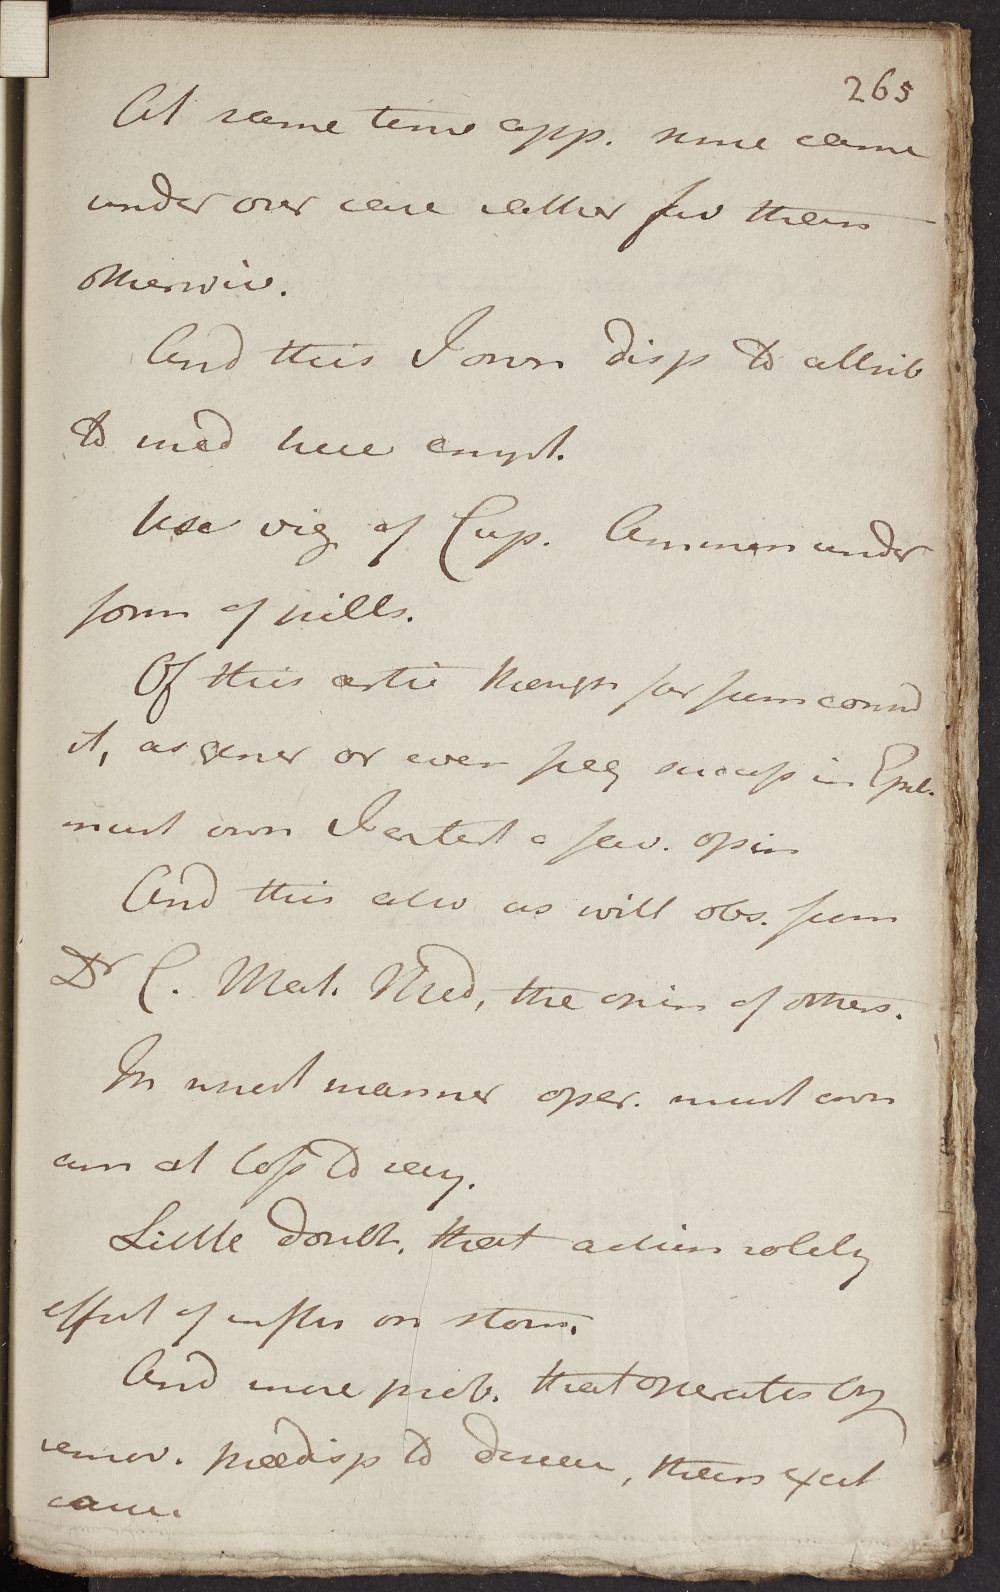 265
At same time app. since came
under our care rather fav than
otherwise.
And this I own disp to attrib
to med here empl.
Use viz of Cup. Ammon under
form of pills.
Of this artic though far from consid
it, as gener or even freq success in Epil.
must own I entert a fav. opin
And this also as will obs. from
Dr C. Mat. Med, the opin of others.
In what manner oper. must own
am at loss to say.
Little doubt, that action solely
effect of on stom.
And more prob. that operates by
remov. predisp to disease, than excit
cause.